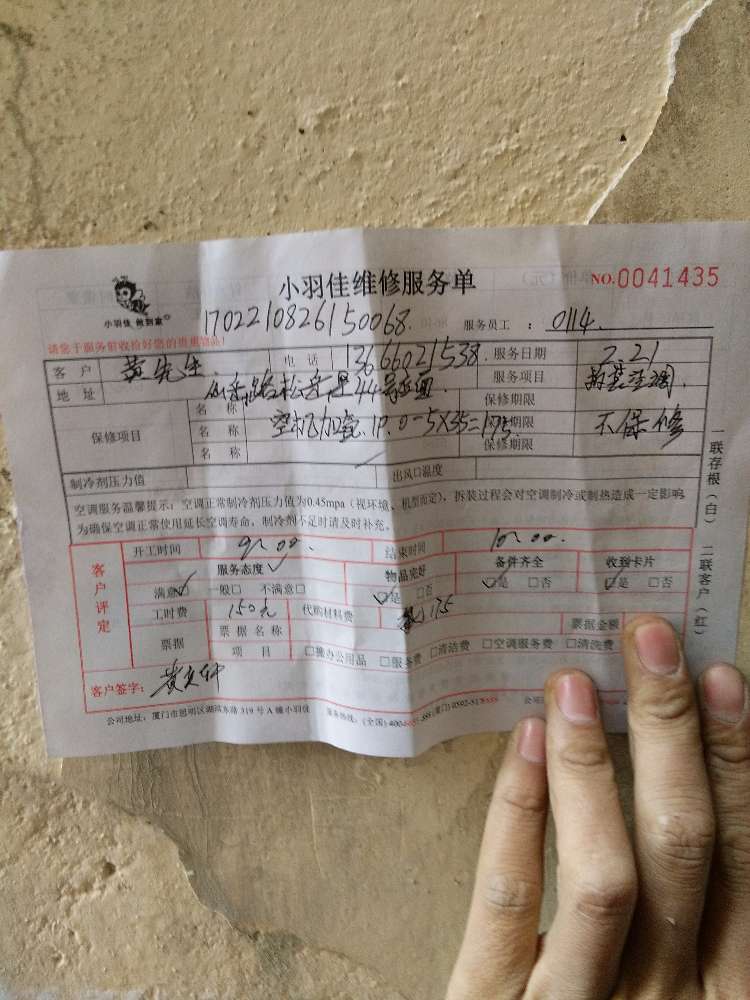 小羽佳维修服务单 NO.0041435
小羽佳 他到家
1702210826150068. 服务员工 : 0114.
请您于服务前收拾好您的贵重物品!
客 户 黄先生 电 话 13666021538. 服务日期 2.21
地 址 44号 服务项目 空调.
名 称 保修期限
保修项目 名 称 空机加氟.1P.0-5X35=175 保修期限 不保修
名 称 保修期限
制冷剂压力值 出风口温度
空调服务温馨提示:空调正常制冷剂压力值为0.45mpa(视环境、机型而定),拆装过程会对空调制冷或制热造成一定影响,
为确保空调正常使用延长空调寿命,制冷剂不足时请及时补充。
一联存根(白) 二联客户(红)
客户评定
开工时间 9:00. 结束时间 10:00.
服务态度 物品完好 备件齐全 收到卡片
满意□ 一般□ 不满意□ □是 □否 □是 □否 □是 □否
工时费 150元 代购材料费 175 票据金额
票据 票据名称
项 目 □办公用品 □服务费 □清洁费 □空调服务费 □清洗费
客户签字:
公司地址:厦门市思明区湖滨东路319号A幢小羽佳 服务热线:(全国)400- (厦门)0592-